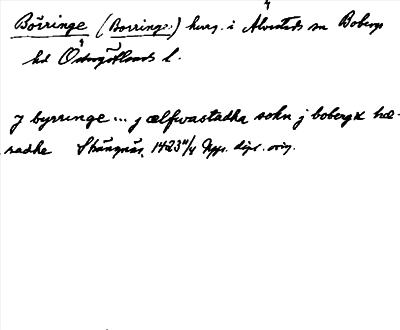 Börringe (Borringe) herrg. i Alvastads sn Bobergs
hd Östergötlands l.
J byrringe ... j ælfwastadha sokn j bobergx hæ-
radhe Skängnäs, 1423 11/4 Upps. dipl. orig.